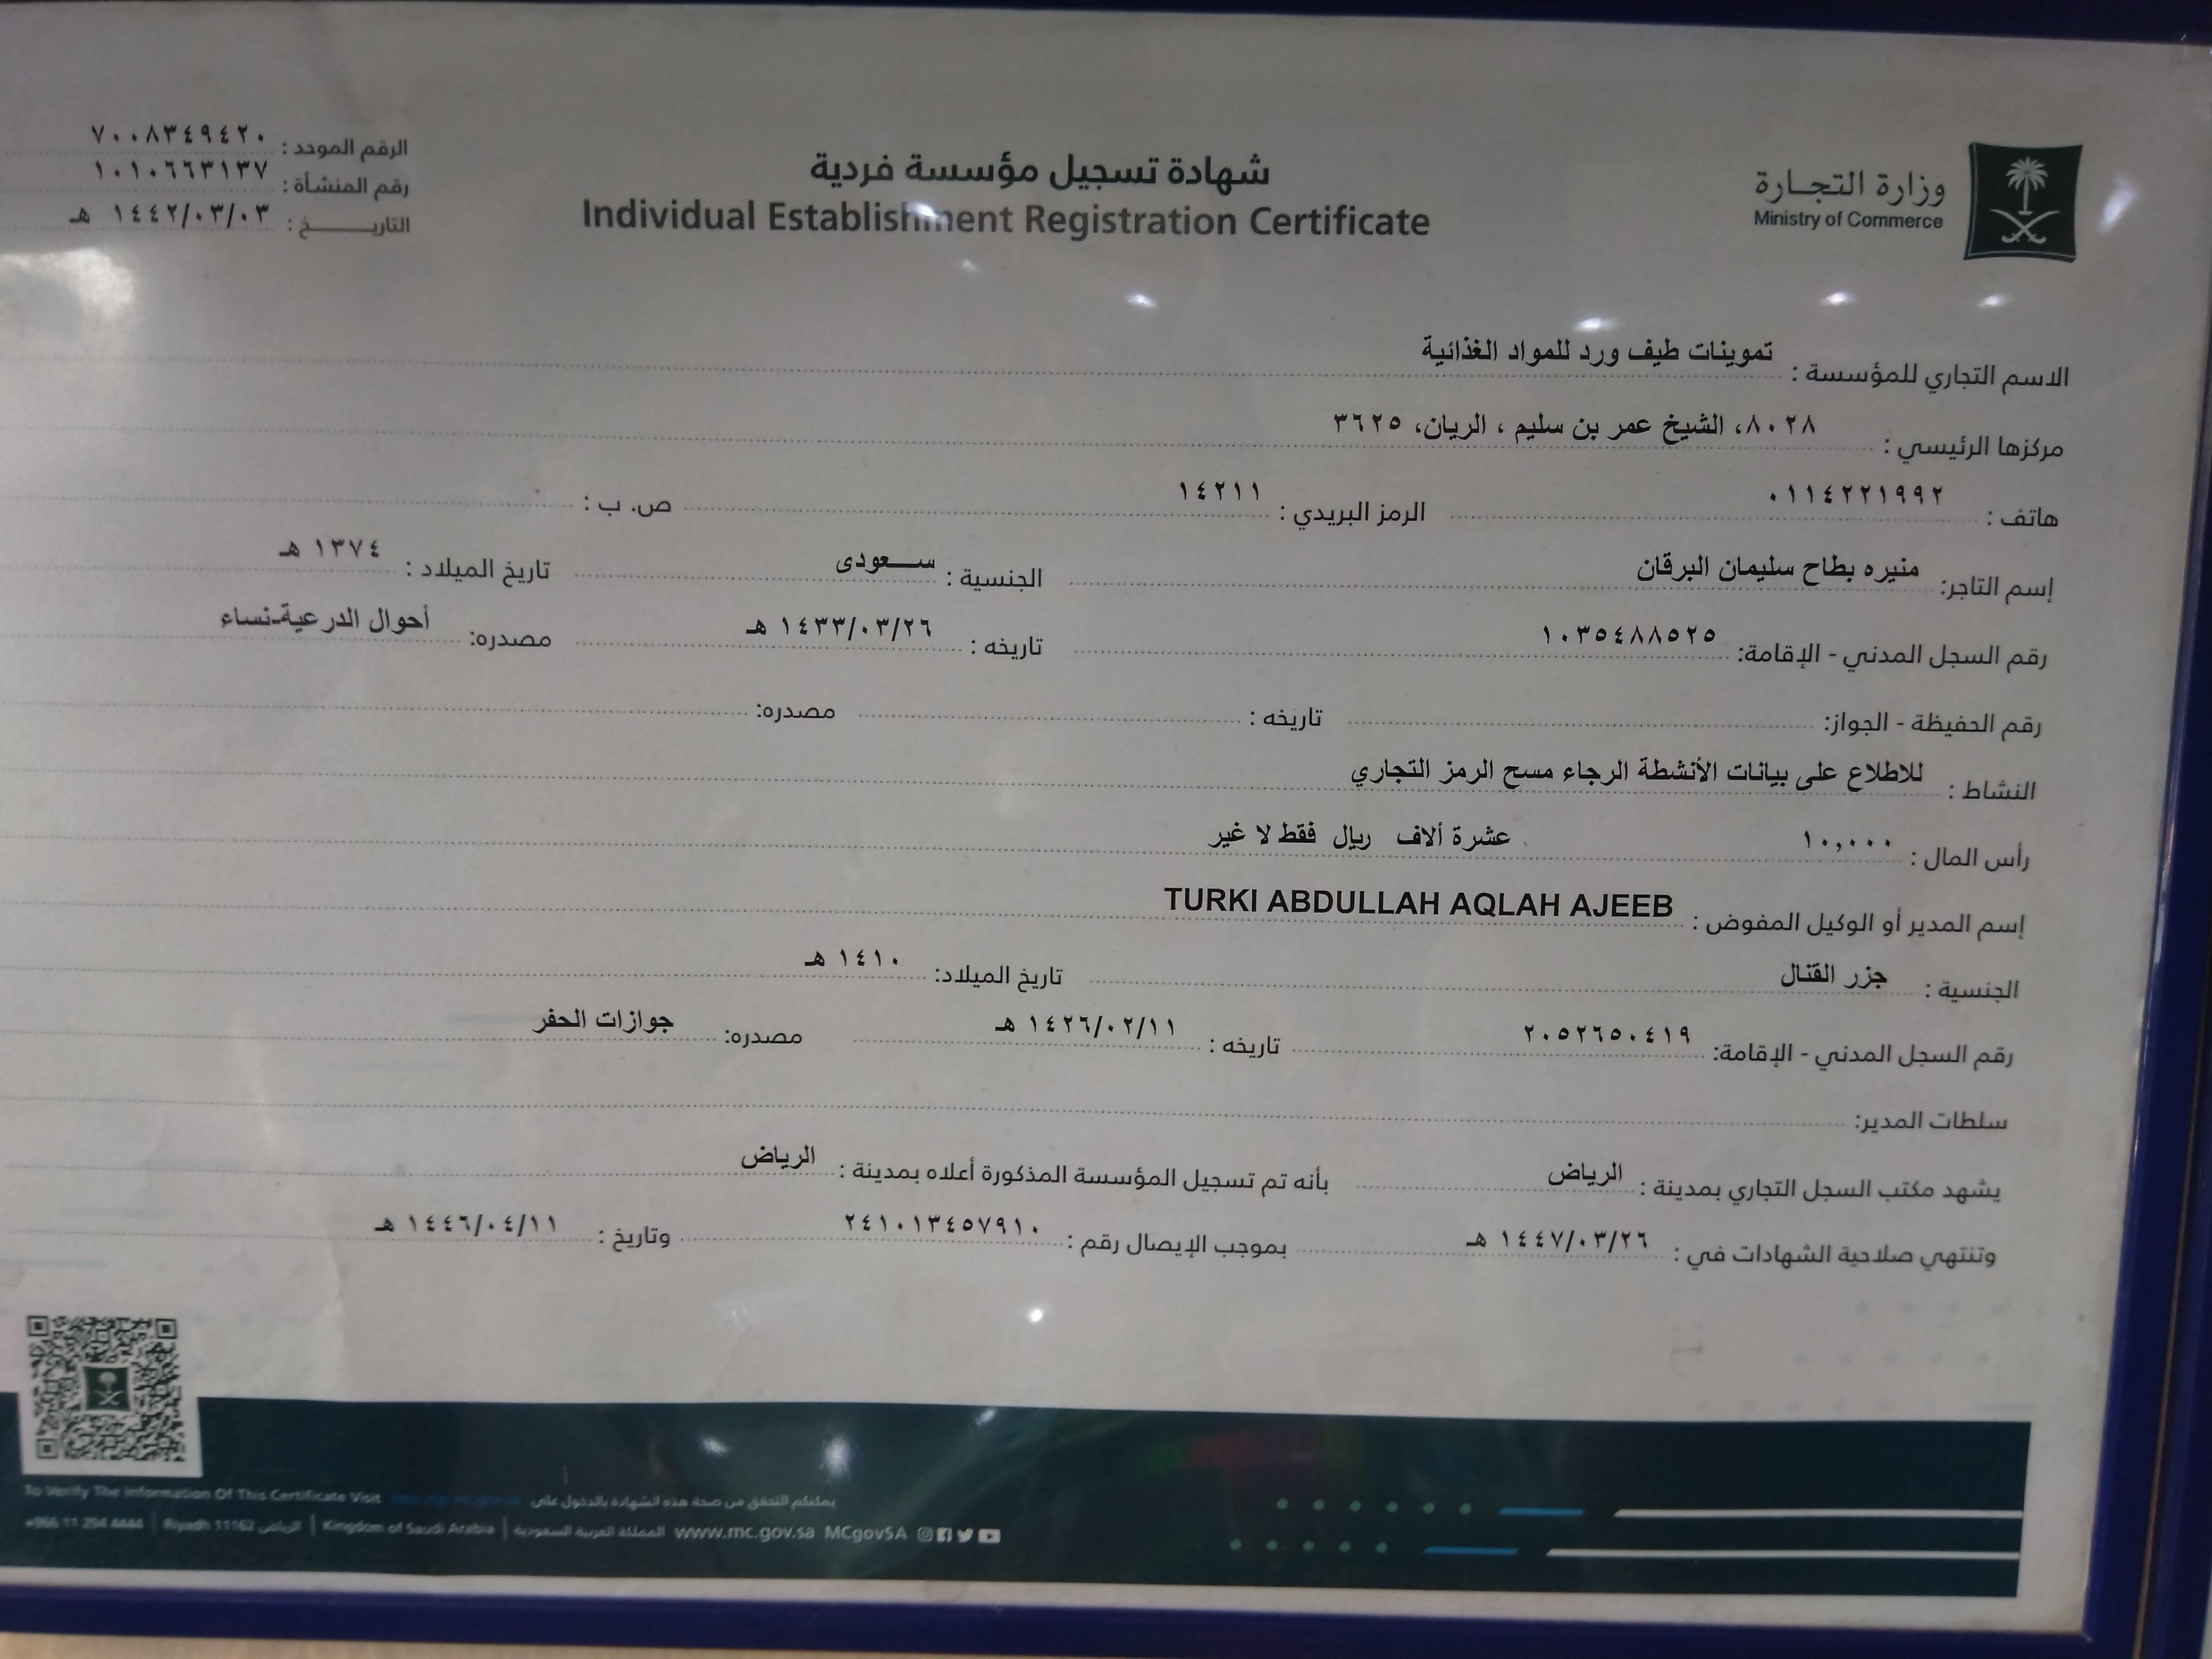 وزارة التجارة
Ministry of Commerce
شهادة تسجيل مؤسسة فردية
Individual Establishment Registration Certificate
الرقم الموحد : ٧٠٠٨٣٤٩٤٢٠
رقم المنشأة : ١٠١٠٦٦٣١٣٧
التاريخ : ١٤٤٢/٠٣/٠٣ هـ
الاسم التجاري للمؤسسة : تموينات طيف ورد للمواد الغذائية
مركزها الرئيسي : ٨٠٢٨، الشيخ عمر بن سليم ، الريان، ٣٦٢٥
هاتف : ٠١١٤٢٢١٩٩٢ الرمز البريدي : ١٤٢١١ ص. ب :
إسم التاجر: منيره بطاح سليمان البرقان الجنسية : سعودى تاريخ الميلاد : ١٣٧٤ هـ
رقم السجل المدني - الإقامة: ١٠٣٥٤٨٨٥٢٥ تاريخه : ١٤٣٣/٠٣/٢٦ هـ مصدره: أحوال الدرعية-نساء
رقم الحفيظة - الجواز: تاريخه : مصدره:
النشاط : للاطلاع على بيانات الأنشطة الرجاء مسح الرمز التجاري
رأس المال : ١٠,٠٠٠ عشرة ألاف ريال فقط لا غير
إسم المدير أو الوكيل المفوض : TURKI ABDULLAH AQLAH AJEEB
الجنسية : جزر القنال تاريخ الميلاد: ١٤١٠ هـ
رقم السجل المدني - الإقامة: ٢٠٥٢٦٥٠٤١٩ تاريخه : ١٤٢٦/٠٢/١١ هـ مصدره: جوازات الحفر
سلطات المدير:
يشهد مكتب السجل التجاري بمدينة : الرياض بأنه تم تسجيل المؤسسة المذكورة أعلاه بمدينة : الرياض
وتنتهي صلاحية الشهادات في : ١٤٤٧/٠٣/٢٦ هـ بموجب الإيصال رقم : ٢٤١٠١٣٤٥٧٩١٠ وتاريخ : ١٤٤٦/٠٤/١١ هـ
To Verify The Information Of This Certificate Visit يمكنكم التحقق من صحة هذه الشهادة بالدخول على
+966 11 294 4444 | Riyadh 11162 الرياض | Kingdom of Saudi Arabia | المملكة العربية السعودية www.mc.gov.sa MCgovSA